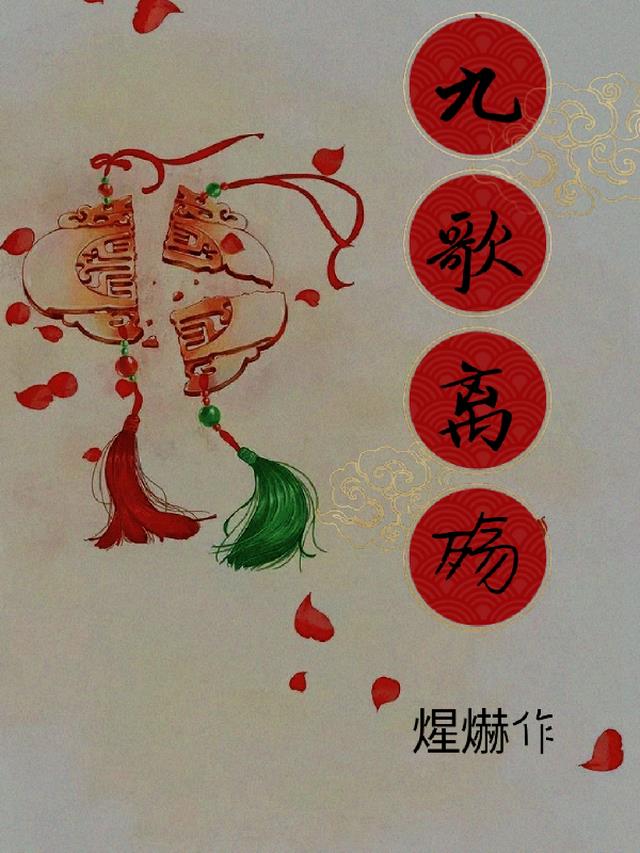 九歌离殇
煋爀作